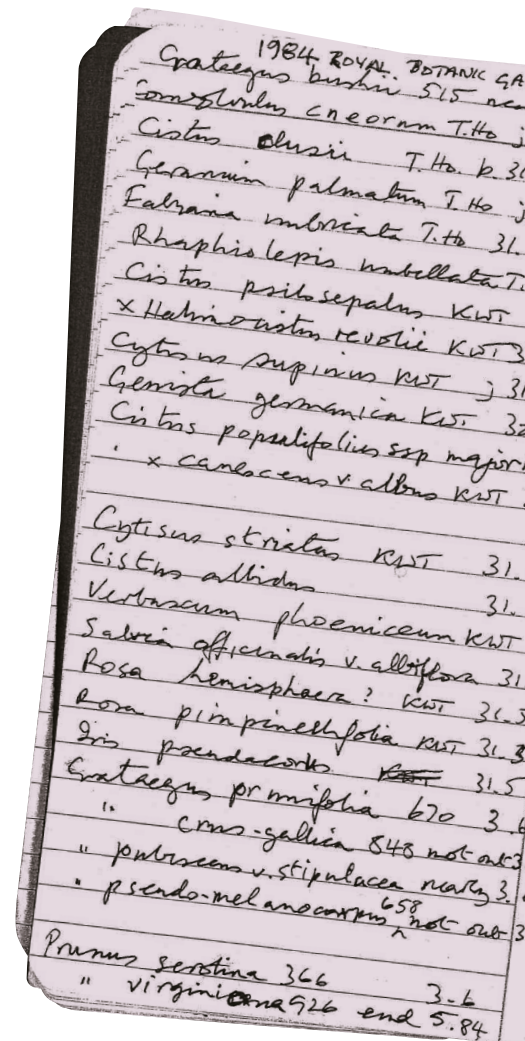 1984 ROYAL BOTANIC GA
Crataegus bushii 515 nea
Convolvulus cneorum T.Ho j
Cistus clusii T.Ho. b. 31
Geranium palmatum T.Ho j
Fabiana imbricata T.Ho 31.
Rhaphiolepis umbellata T.
Cistus psilosepalus KWT
x Halimiocistus revolii KWT 3
Cytisus supinus KWT j 31
Genista germanica KWT 32
Cistus populifolius ssp major
" x canescens v. albus KWT
Cytisus striatus KWT 31.
Cistus albidus 31.
Verbascum phoeniceum KWT
Salvia officinalis v. albiflora 31
Rosa hemisphaera? KWT 31.5
Rosa pimpinellifolia KWT 31.5
Iris pseudacorus 31.5
Crataegus prunifolia 670 3.6
" crus-gallica 848 not out 3
" pubescens v. stipulacea nearly 3.
" pseudo-melanocarpus 658 not out 3
Prunus serotina 366 3.6
" virginiana 926 end 5.84